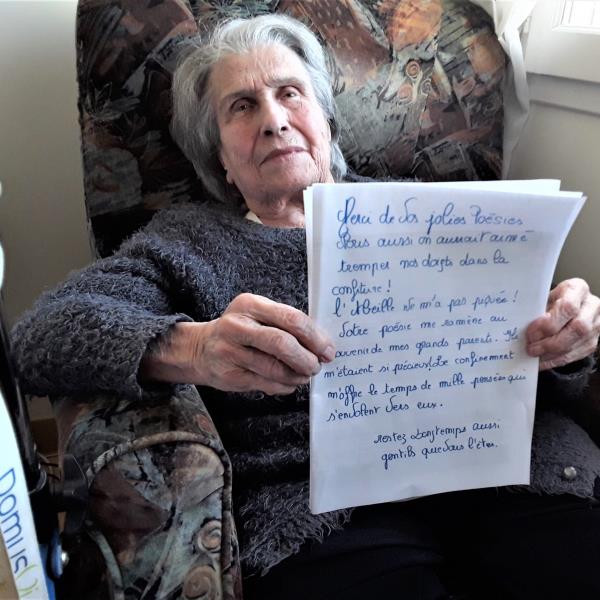 Merci de Vos jolies Poésies
Nous aussi on aurait aimé
tremper nos doigts dans la
confiture !
L'Abeille Ne m'a pas piquée !
Votre poésie me ramène au
souvenir de mes grands parents. Ils
m'étaient si précieux! Le confinement
m'offre le temps de mille pensées qui
s'envolent Vers eux.
restez Longtemps aussi
gentils que Vous l'êtes.
Domus